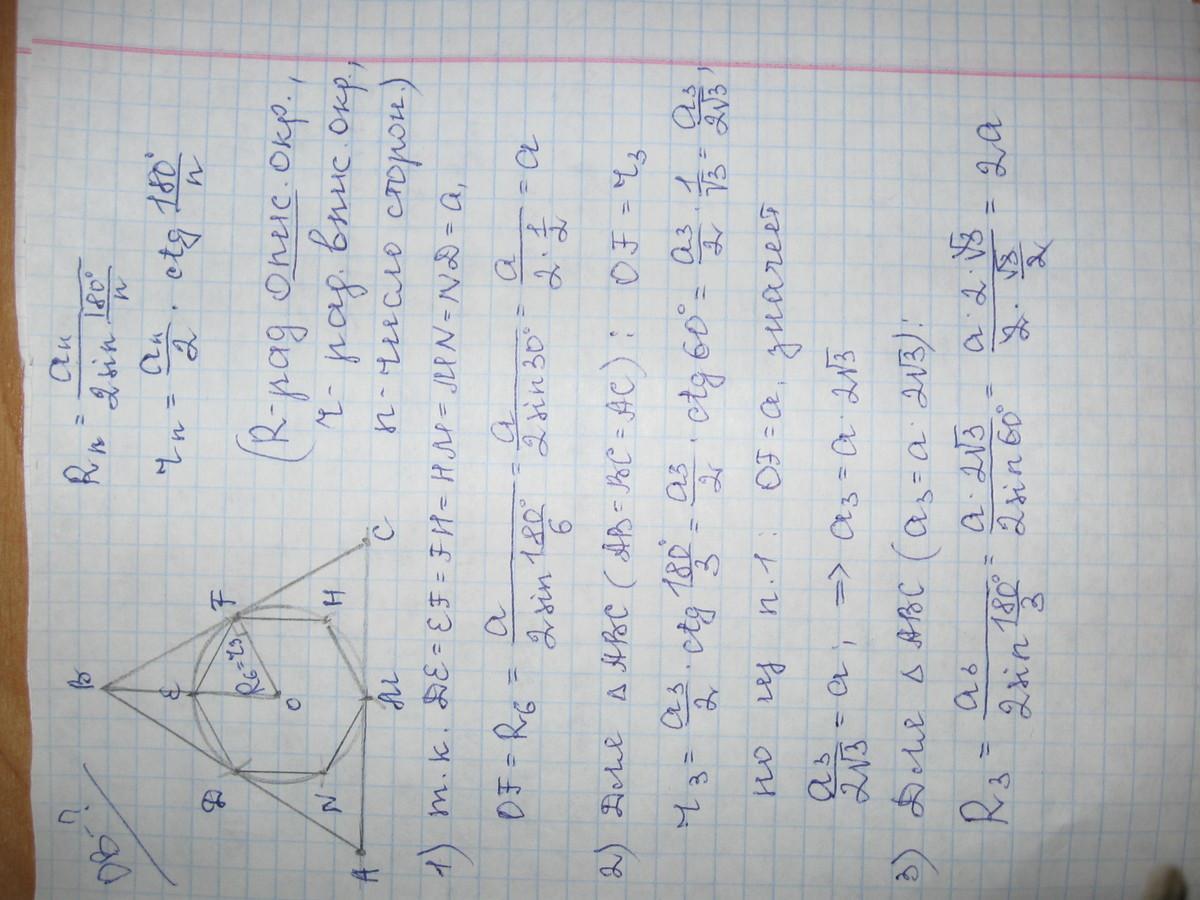 OB-?
B
E
D
F
R₆=r₃
O
N
H
A
M
C
Rₙ = aₙ / (2 sin 180°/n)
rₙ = aₙ/2 · ctg 180°/n
(R-рад опис. окр.,
r- рад. впис. окр.,
n-число сторон.)
1) т.к. DE = EF = FH = HM = MN = ND = a,
OF = R₆ = a / (2 sin 180°/6) = a / (2 sin 30°) = a / (2 · 1/2) = a
2) Для Δ ABC (AB = BC = AC) : OF = r₃
r₃ = a₃/2 · ctg 180°/3 = a₃/2 · ctg 60° = a₃/2 · 1/√3 = a₃/2√3 ,
но из п.1: OF = a, значит
a₃/2√3 = a ; => a₃ = a · 2√3
3) Для Δ ABC (a₃ = a · 2√3):
R₃ = a₃ / (2 sin 180°/3) = a · 2√3 / (2 sin 60°) = a · 2 · √3 / (2 · √3/2) = 2a